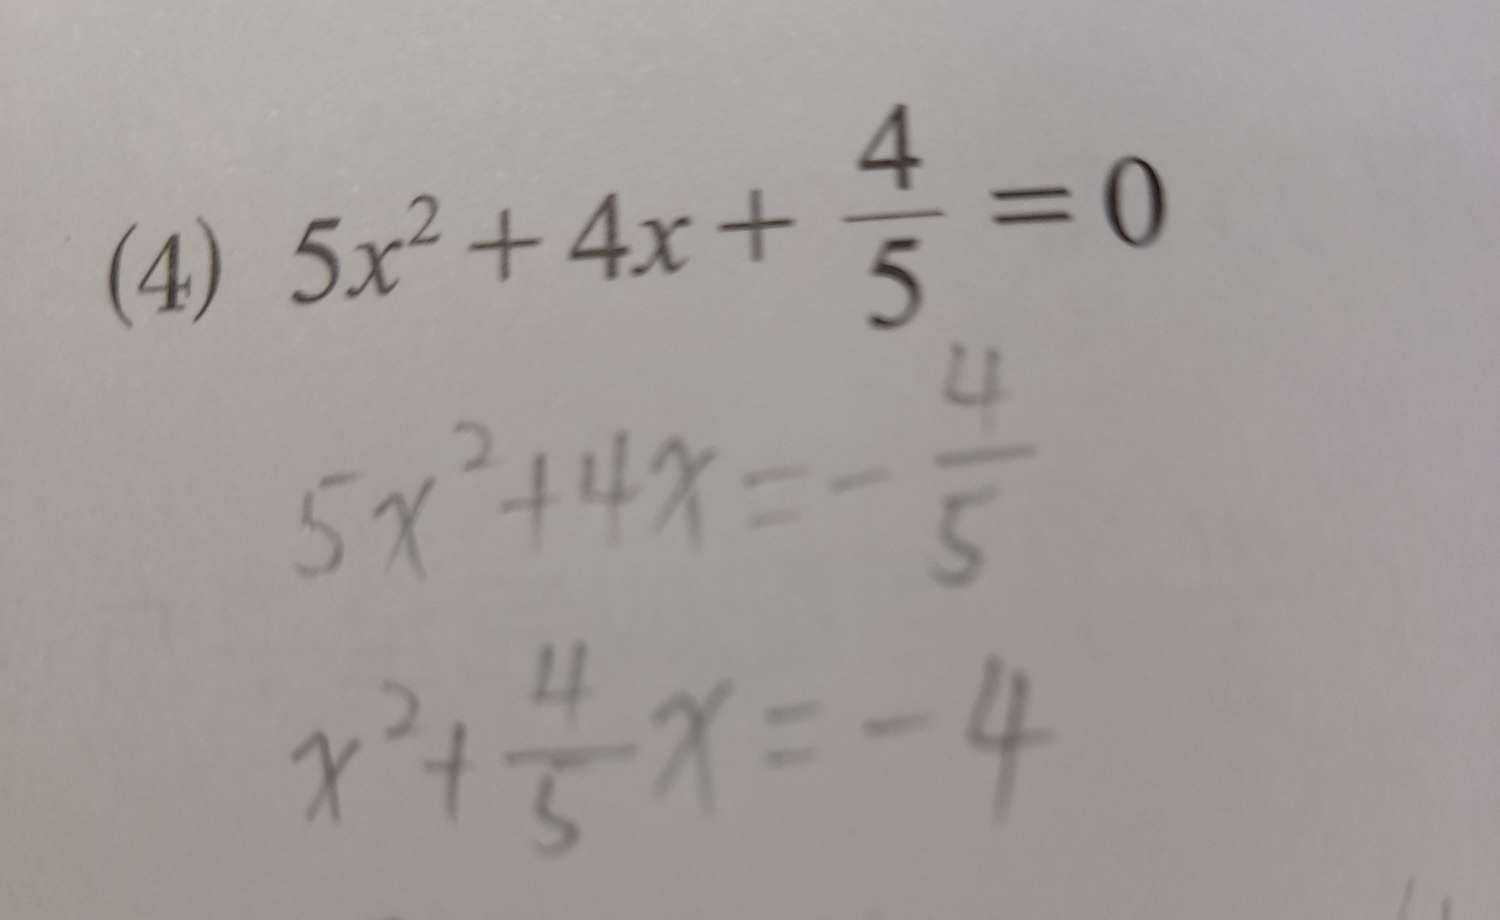 (4) 5x² + 4x + 4/5 = 0
5x² + 4x = - 4/5
x² + 4/5 x = - 4